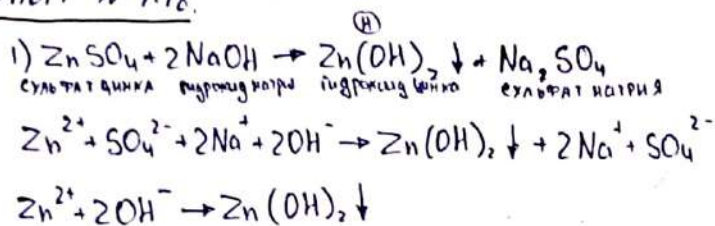 (H)
1) ZnSO₄ + 2NaOH → Zn(OH)₂ ↓ + Na₂SO₄
сульфат цинка гидроксид натри гидроксид цинка сульфат натрия
Zn²⁺ + SO₄²⁻ + 2Na⁺ + 2OH⁻ → Zn(OH)₂ ↓ + 2Na⁺ + SO₄²⁻
Zn²⁺ + 2OH⁻ → Zn(OH)₂ ↓